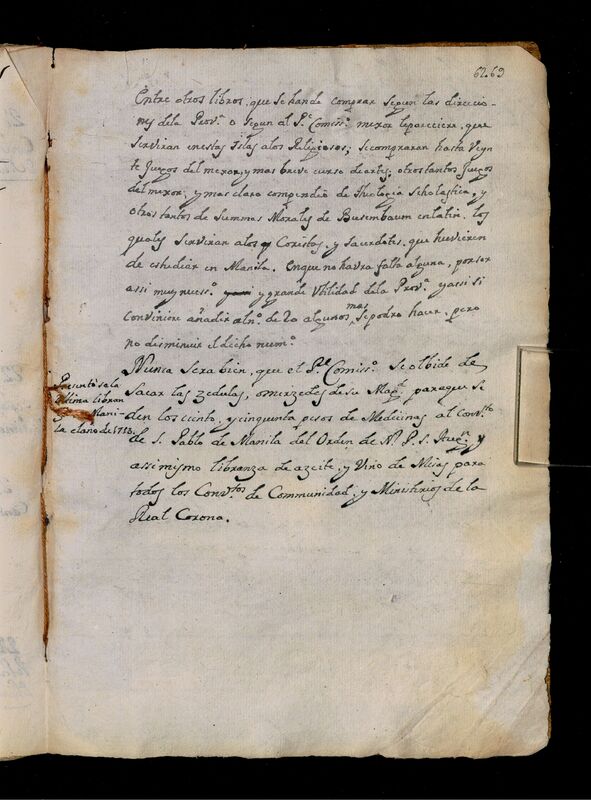 62.69
Entre otros libros, que se han de comprar segun las direccio-
nes de la Prov.ª o segun al P.e Comiss.º mexor le pareciere, que
serviran en estas Islas a los Religiosos; se compraran hasta veyn
te Juegos del mexor, y mas breve curso de artes; otros tantos Juegos
del mexor, y mas claro compendio de Theologia Scholastica, y
otros tantos de Summas Morales de Busembaum en latin, los
quales serviran a los Coristas, y Sacerdotes, que huvieren
de estudiar en Manila. En que no havra falta alguna, por ser
assi muy necess.º y grande Utilidad de la Prov.ª y assi si
conviniere añadir al n.º de 20 algunos mas se podra hacer, pero
no disminuir el dicho num.º
Nunca sera bien, que el P.e Comiss.º se olbide de
Sacar las zedulas, o merzedes de su Mag.d para que se
den los ciento, y cinquenta pesos de Medicinas al Conv.to
de S. Pablo de Manila del Orden de N. P. S. Aug.n y
assimismo libranza de azeite, y Vino de Misas para
todos los Conv.tos de Communidad, y Ministerios de la
Real Corona.
Presentose la
ultima libran
Mani-
la el año de 1713.